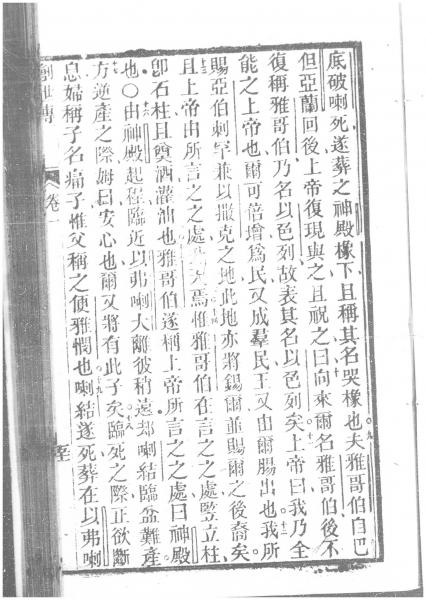 底破喇死遂葬之神殿橡下且稱其名哭橡也夫雅哥伯自巴
但亞蘭回後上帝復現與之且祝之曰向來爾名雅哥伯後不
復稱雅哥伯乃名以色列故表其名以色列矣上帝曰我乃全
能之上帝也爾可倍增爲民又成羣民王又由爾腸出也我所
賜亞伯剌罕兼以撒克之地此地亦將錫爾並賜爾之後裔矣
且上帝由所言之之處焉惟雅哥伯在言之之處竪立柱
卽石柱且奠酒灌油也雅哥伯遂稱上帝所言之之處曰神殿
也○由神殿起程臨近以弗喇大離彼稍遠却喇結臨盆難產
方逆產之際姆曰安心也爾又將有此子矣臨死之際正欲斷
息婦稱子名痛子惟父稱之便雅憫也喇結遂死葬在以弗喇
創世傳
卷一